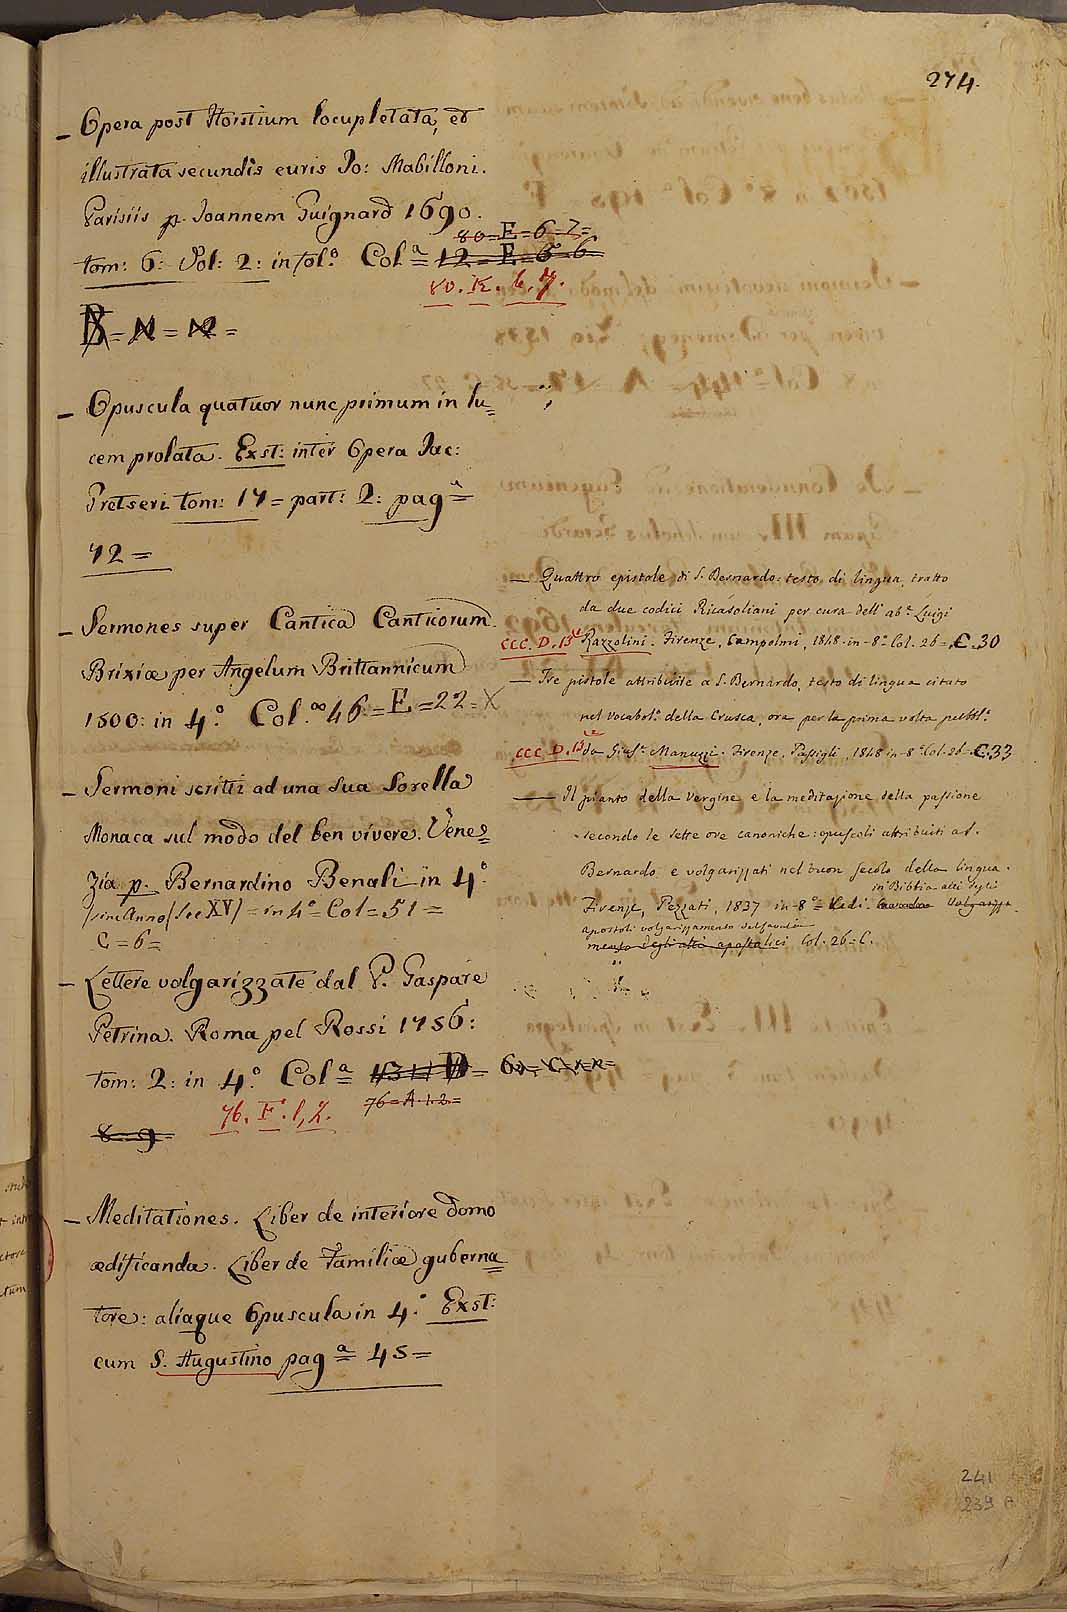 274.
– Opera post Horstium locupletata, et
illustrata secundis curis Jo: Mabilloni.
Parisiis p. Joannem Guignard 1690.
80=E=6=7=
tom: 6: Vol: 2: in fol.º Col.ª 12=E=6=6
80. E. 6. 7.
B=N=12=
– Opuscula quatuor nunc primum in lu=
cem prolata. Exst: inter Opera Jac:
Pretseri tom: 17= part: 2: pagª
72=
– Sermones super Cantica Canticorum.
Brixiæ per Angelum Brittannicum
1500: in 4.º Col.ª 46=E=22=
– Sermoni scritti ad una sua Sorella
Monaca sul modo del ben vivere. Vene=
zia p. Bernardino Benali in 4º
(sine Anno) (Sec XV) = in 4º= Col=51=
C=6=
– Lettere volgarizzate dal P. Gaspare
Petrina. Roma pel Rossi 1756:
tom: 2: in 4.º Colª
76=A.1.2=
76. F. 1, 2.
8=9=
– Meditationes. Liber de interiore domo
ædificanda. Liber de Familiæ guberna
tore: aliaque Opuscula in 4.º Exst:
cum S. Augustino pagª 45=
– Quattro epistole di S. Bernardo: testo di lingua tratto
da due codici Ricasoliani per cura dell' abe. Luigi
CCC. D. 13 Razzolini. Firenze, Campolmi, 1848. in-8º Col. 26=C.30
– Tre pistole attribuite a S. Bernardo, testo di lingua citato
nel vocabol.º della Crusca, ora per la prima volta pubbl.º
CCC. D. 13 da Gius.e Manuzzi. Firenze, Passigli, 1848 in-8º Col. 26=C.33
– Il pianto della Vergine e la meditazione della passione
secondo le sette ore canoniche: opuscoli attribuiti a S.
Bernardo e volgarizzati nel buon secolo della lingua.
in Bibbia atti degli
Firenze, Pezzati, 1837 in-8º= Vedi. Volgarizz
apostoli volgarizzamento
mento degli atti apostolici Col. 26=C.
241
239 A